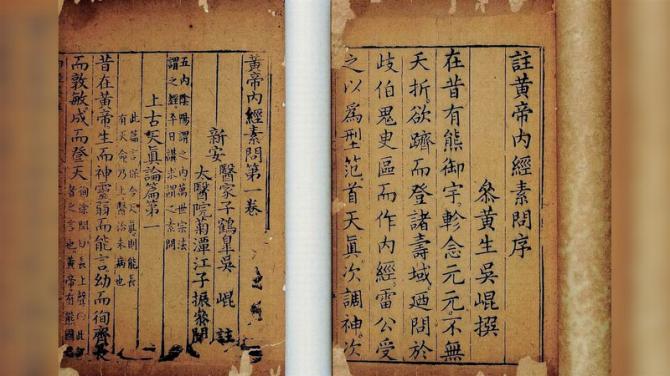 註黃帝內經素問序
叅黃生吳崐撰
在昔有熊御宇軫念元元不無
夭折欲躋而登諸壽域廼問於
岐伯鬼史區而作內經雷公受
之以爲型范首天眞次調神次
黃帝內經素問第一卷
新安 醫家子鶴臯吳 崐 註
太醫院菊潭江子振叅閱
五內陰陽謂之內萬世宗法
謂之經平日講求謂之素問
上古天眞論篇第一
此篇言保合天眞則能長
有天命乃上醫治未病也
昔在黃帝生而神靈弱而能言幼而徇齊長
而敦敏成而登天 徇徐閏切長上聲○此
者之言也黃帝有熊國